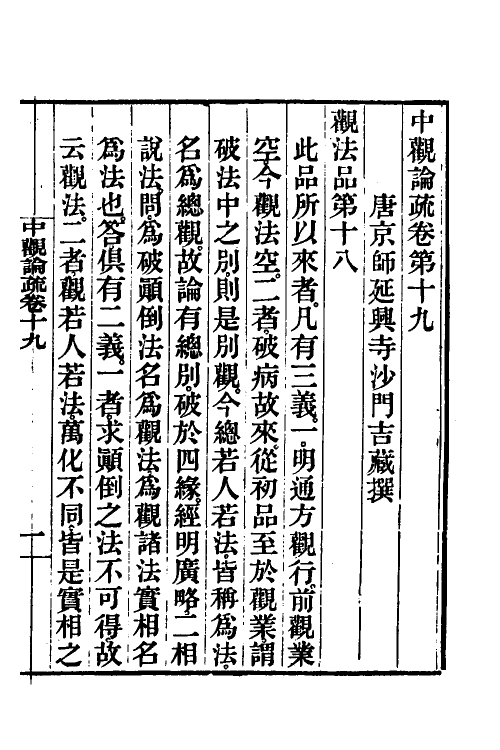 中觀論疏卷第十九
唐京師延興寺沙門吉藏撰
觀法品第十八
此品所以來者。凡有三義。一明通方觀行。前觀業
空。今觀法空。二者。破病故來。從初品至於觀業。謂
破法中之別。則是別觀。今總若人若法。皆稱爲法。
名爲總觀。故論有總別。破於四緣。經明廣略。二相
說法。問。爲破顚倒法名爲觀法。爲觀諸法實相名
爲法也。答。俱有二義。一者。求顚倒之法不可得。故
云觀法。二者觀若人若法。萬化不同。皆是實相之
中觀論疏卷十九
一